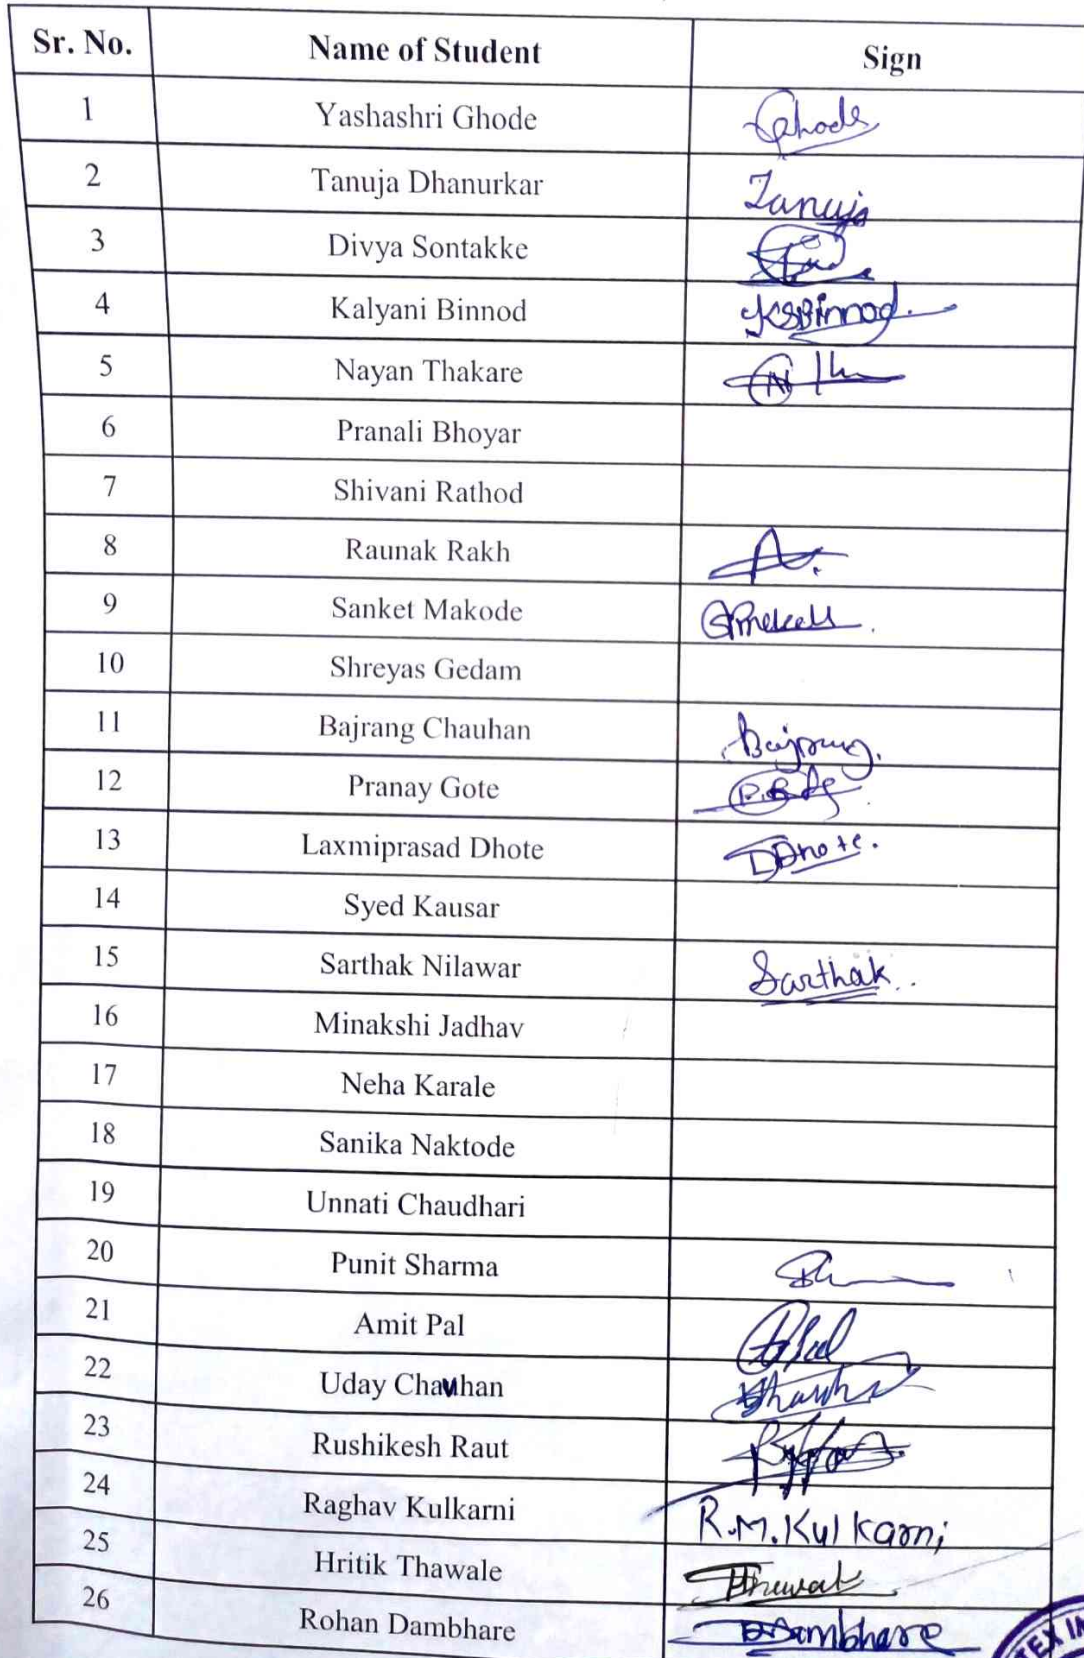 Sr. No. Name of Student Sign
1 Yashashri Ghode Ghode
2 Tanuja Dhanurkar Tanuja
3 Divya Sontakke
4 Kalyani Binnod KSBinnod.
5 Nayan Thakare
6 Pranali Bhoyar
7 Shivani Rathod
8 Raunak Rakh
9 Sanket Makode
10 Shreyas Gedam
11 Bajrang Chauhan Bajrang.
12 Pranay Gote
13 Laxmiprasad Dhote LDhote.
14 Syed Kausar
15 Sarthak Nilawar Sarthak..
16 Minakshi Jadhav
17 Neha Karale
18 Sanika Naktode
19 Unnati Chaudhari
20 Punit Sharma
21 Amit Pal
22 Uday Chauhan
23 Rushikesh Raut
24 Raghav Kulkarni R.M.Kulkarni
25 Hritik Thawale
26 Rohan Dambhare Dambhare